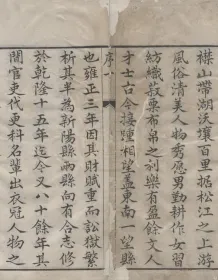 櫟山帶湖沃壤百里據松江之上游
風俗清美人物秀慤男勤耕作女習
紡織菽粟布帛之利樂有盈餘文人
才士古今接踵相望蓋東南一望縣
也雍正三年因其財賦重而訟獄繁
析其半為新陽縣兩縣向有合志修
於乾隆十五年迄今又八十餘年其
間官吏代更科名輩出衣冠人物之
序